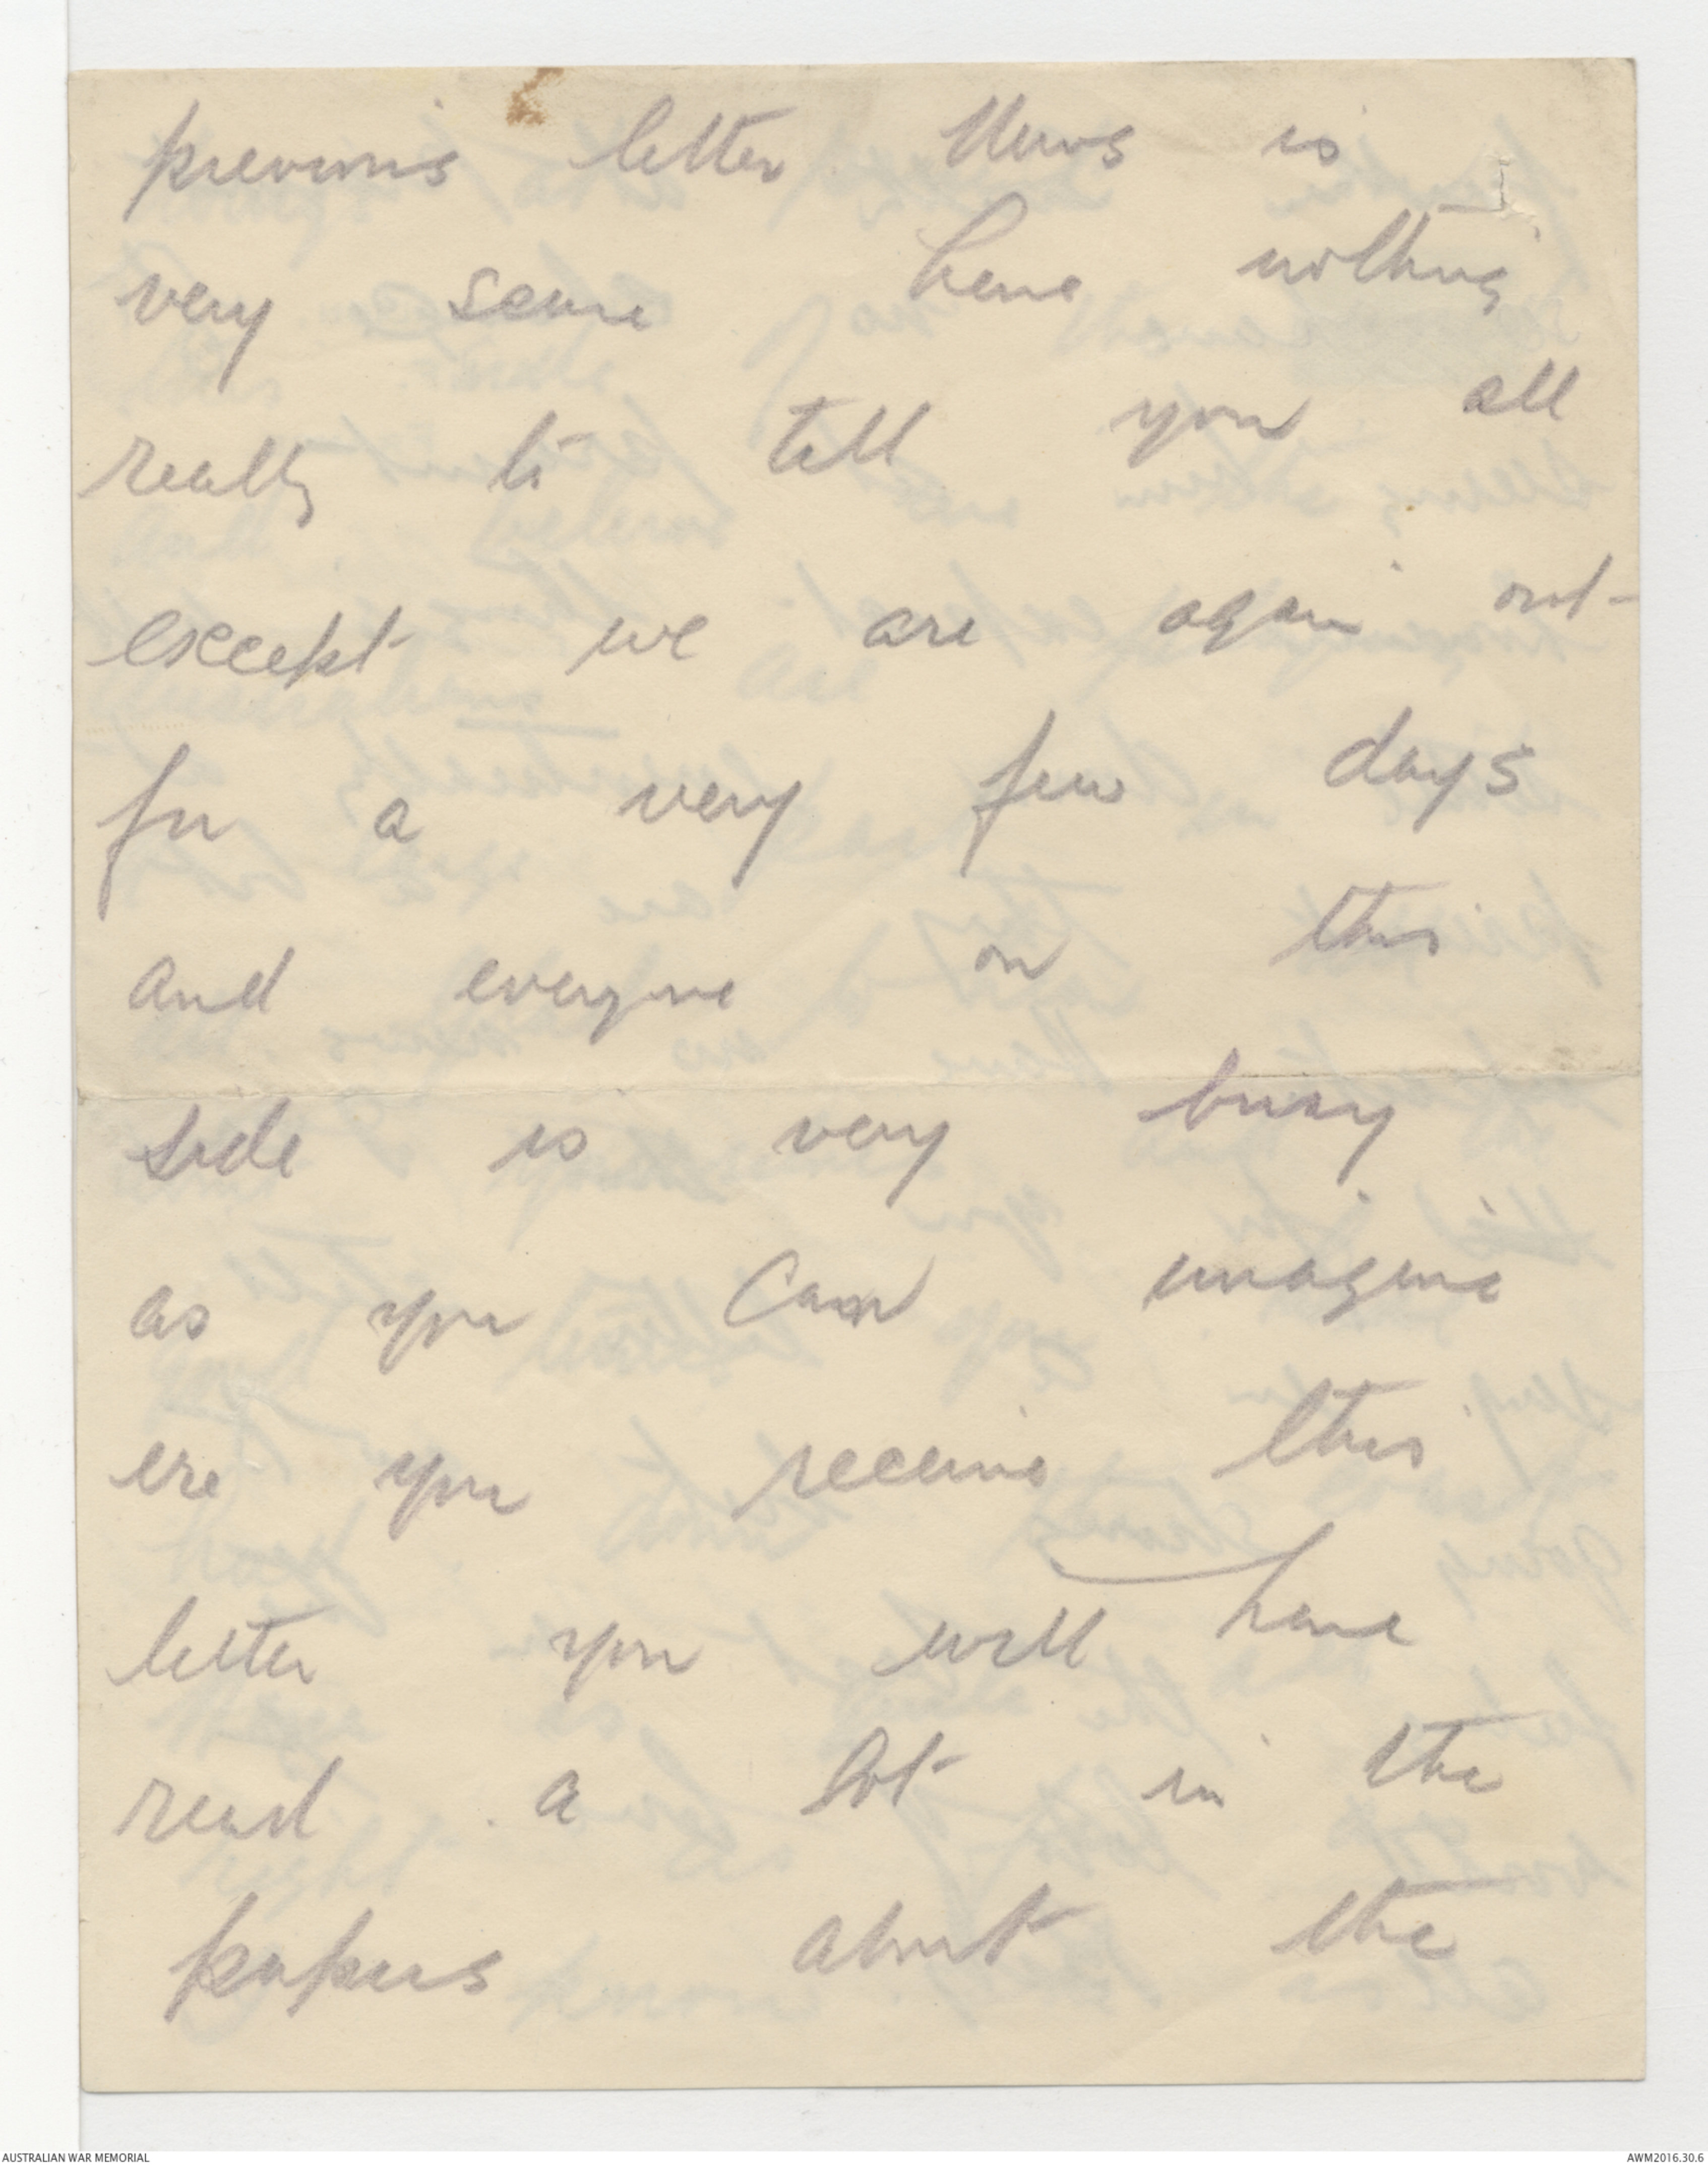 previous letter News is
very scarce have nothing
really to tell you all
except we are again out
for a very few days
and everyone on this
side is very busy
as you can imagine
ere you receive this
letter you will have
read a lot in the
papers about the
AUSTRALIAN WAR MEMORIAL
AWM2016.30.6